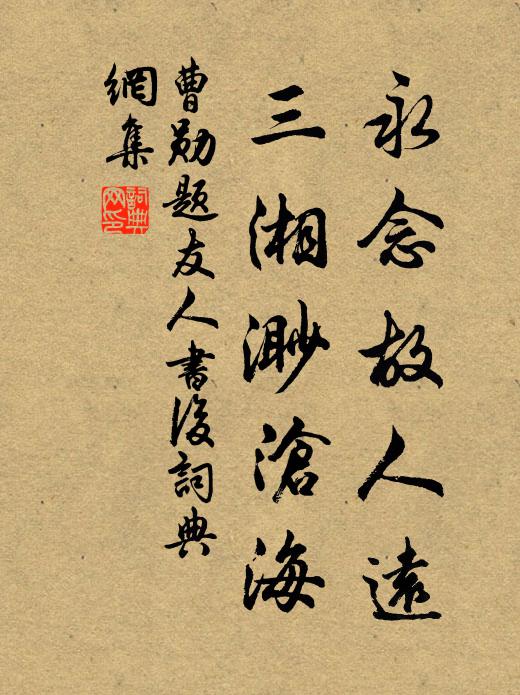 永念故人遠
三湘渺滄海
曹勛題友人書後詞典
網集
詞典
网印